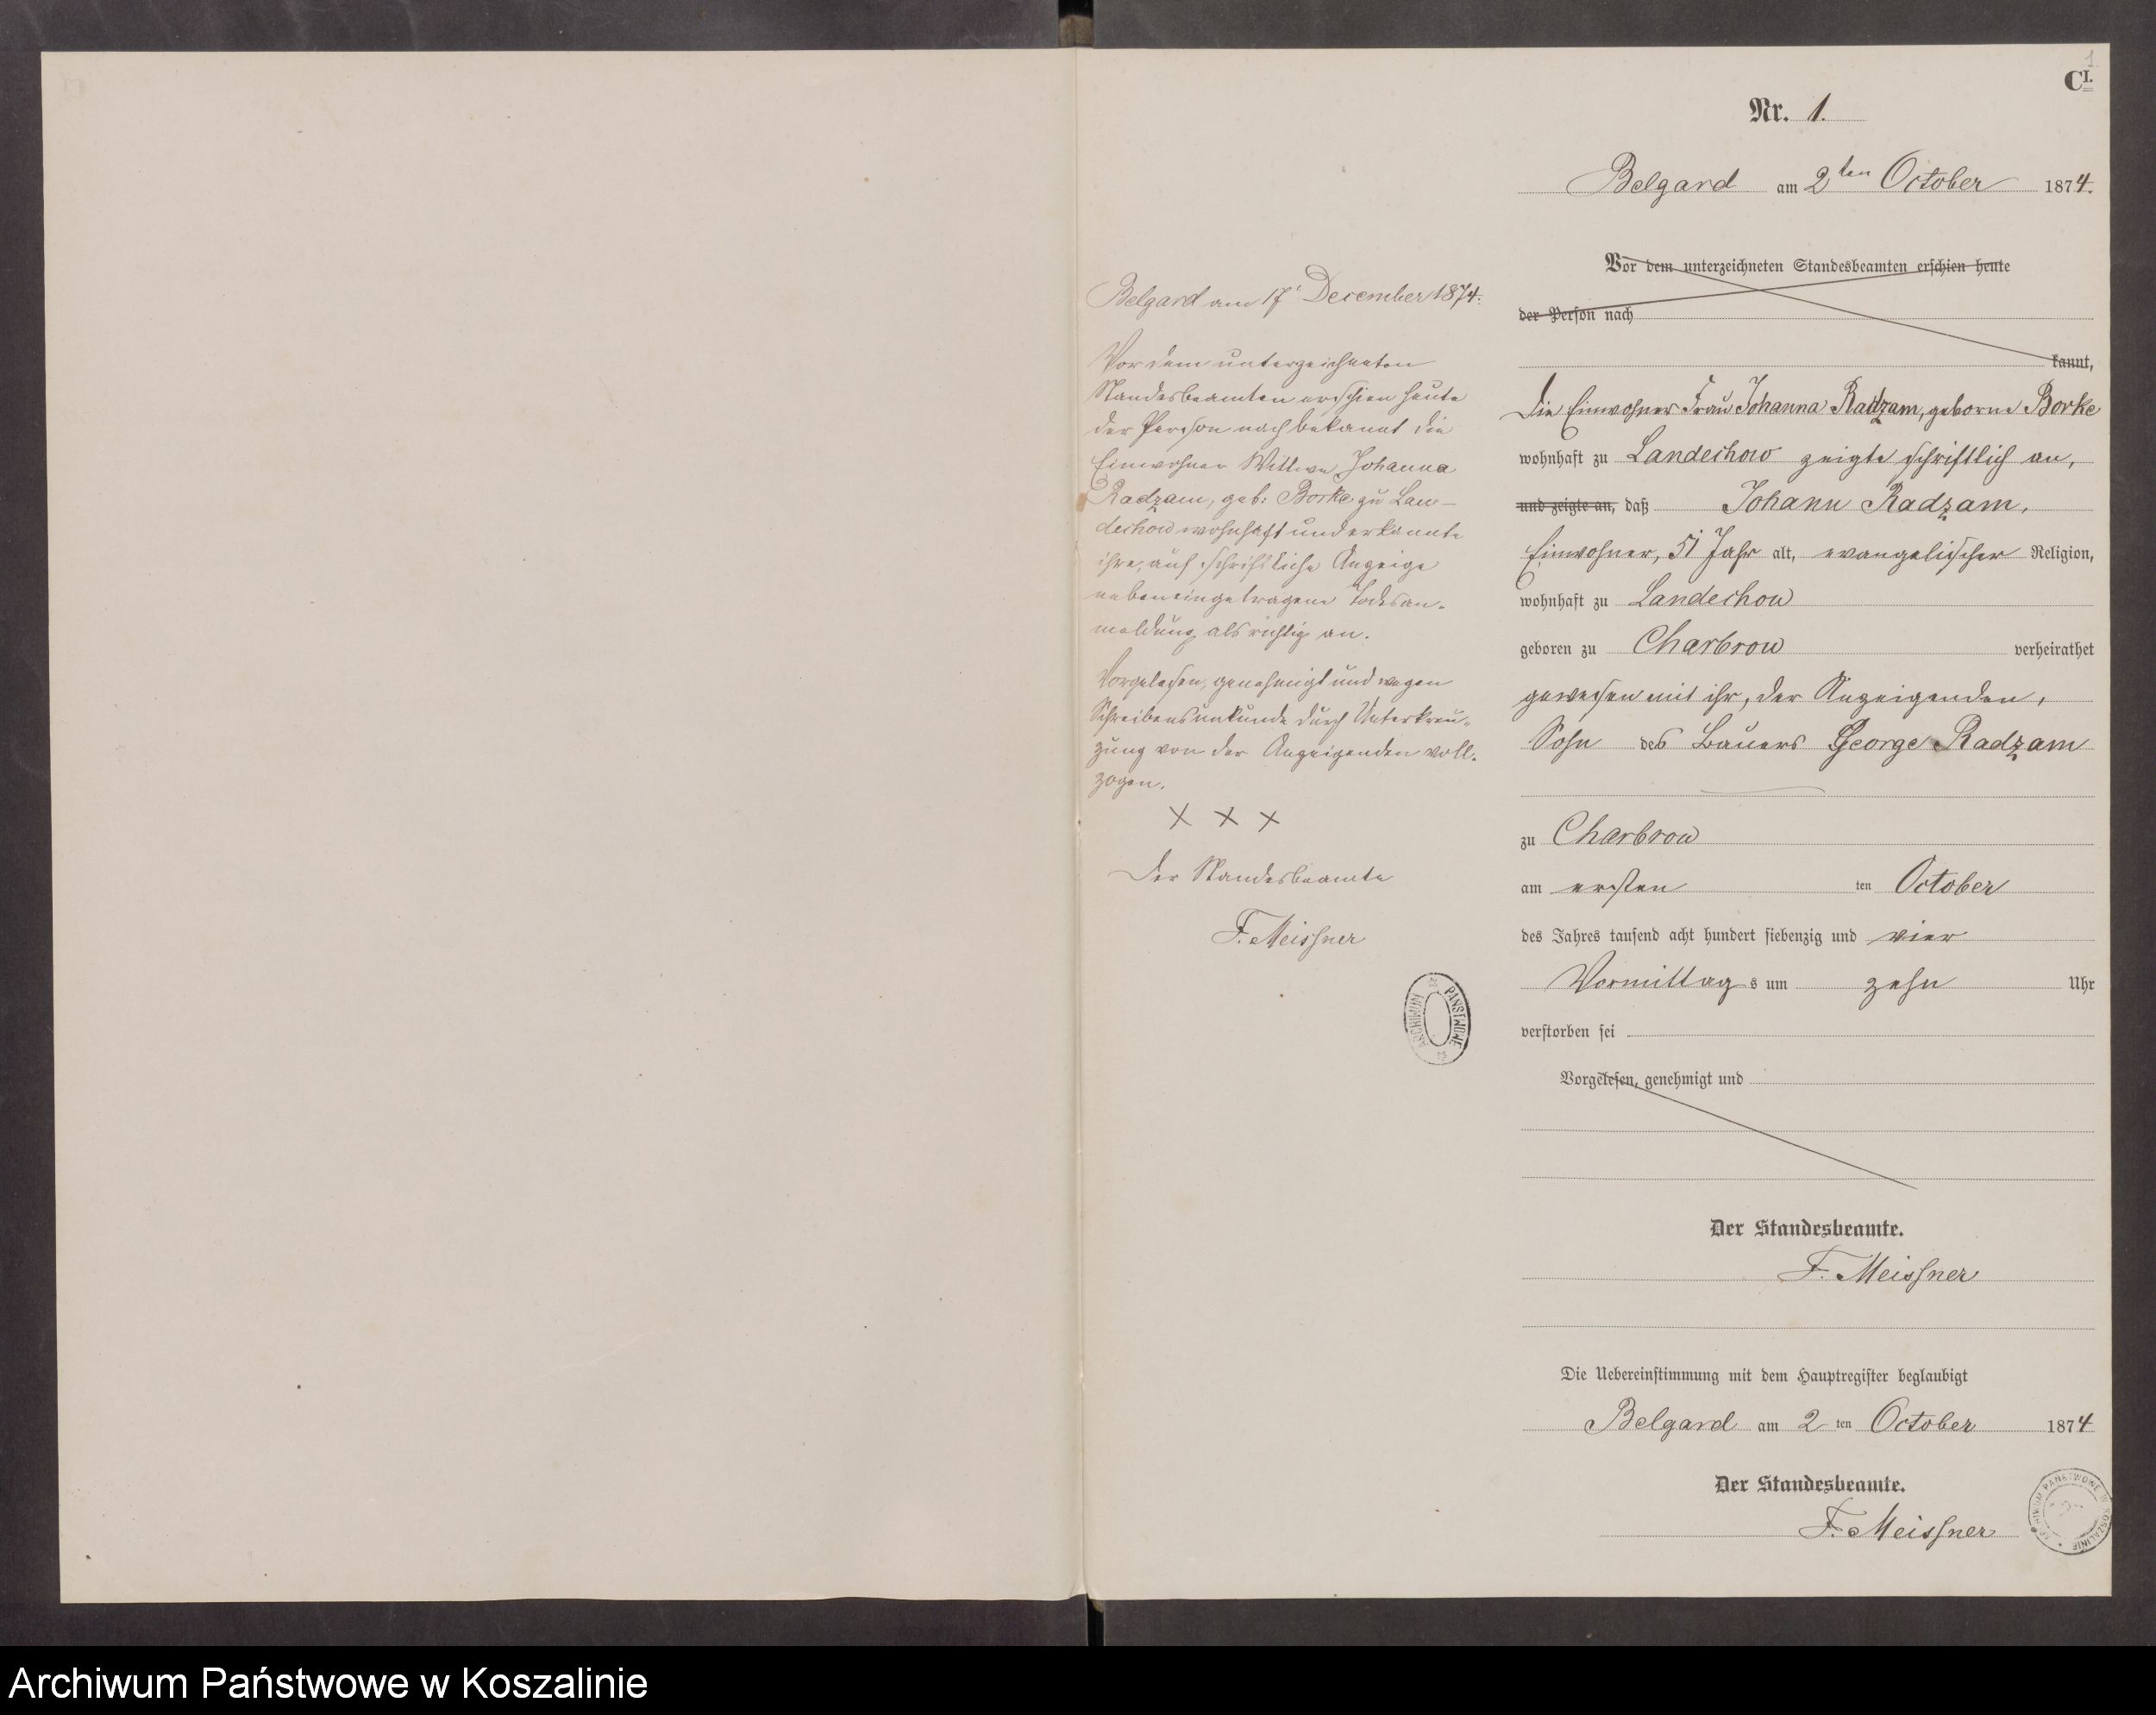 1
CI.
Nr. 1.
Belgard am 2ten October 1874.
Vor dem unterzeichneten Standesbeamten erschien heute
der Person nach
kannt,
die Einwohner Frau Johanna Radzam, geborne Borke
wohnhaft zu Landechow zeigte schriftlich an,
und zeigte an, daß Johann Radzam,
Einwohner, 51 Jahr alt, evangelischer Religion,
wohnhaft zu Landechow
geboren zu Charbrow verheirathet
gewesen mit ihr, der Anzeigenden,
Sohn des Bauers George Radzam
zu Charbrow
am ersten ten October
des Jahres tausend acht hundert siebenzig und vier
Vormittag s um zehn Uhr
verstorben sei
Vorgelesen, genehmigt und
Der Standesbeamte.
F. Meissner
Die Uebereinstimmung mit dem Hauptregister beglaubigt
Belgard am 2 ten October 1874
Der Standesbeamte.
F. Meissner
Belgard am 17t December 1874.
Vor dem unterzeichneten
Standesbeamten erschien heute
der Person nach bekannt die
Einwohner Wittwe Johanna
Radzam, geb: Borke zu Lan-
dechow wohnhaft und erkannte
ihre, auf schriftliche Anzeige
nebeneingetragene Todesan-
meldung als richtig an.
Vorgelesen, genehmigt und wegen
Schreibensunkunde durch Unterkreu-
zung von der Anzeigenden voll-
zogen.
X X X
Der Standesbeamte
F. Meissner
ARCHIWUM PAŃSTWOWE
ARCHIWUM PAŃSTWOWE W KOSZALINIE
Archiwum Państwowe w Koszalinie